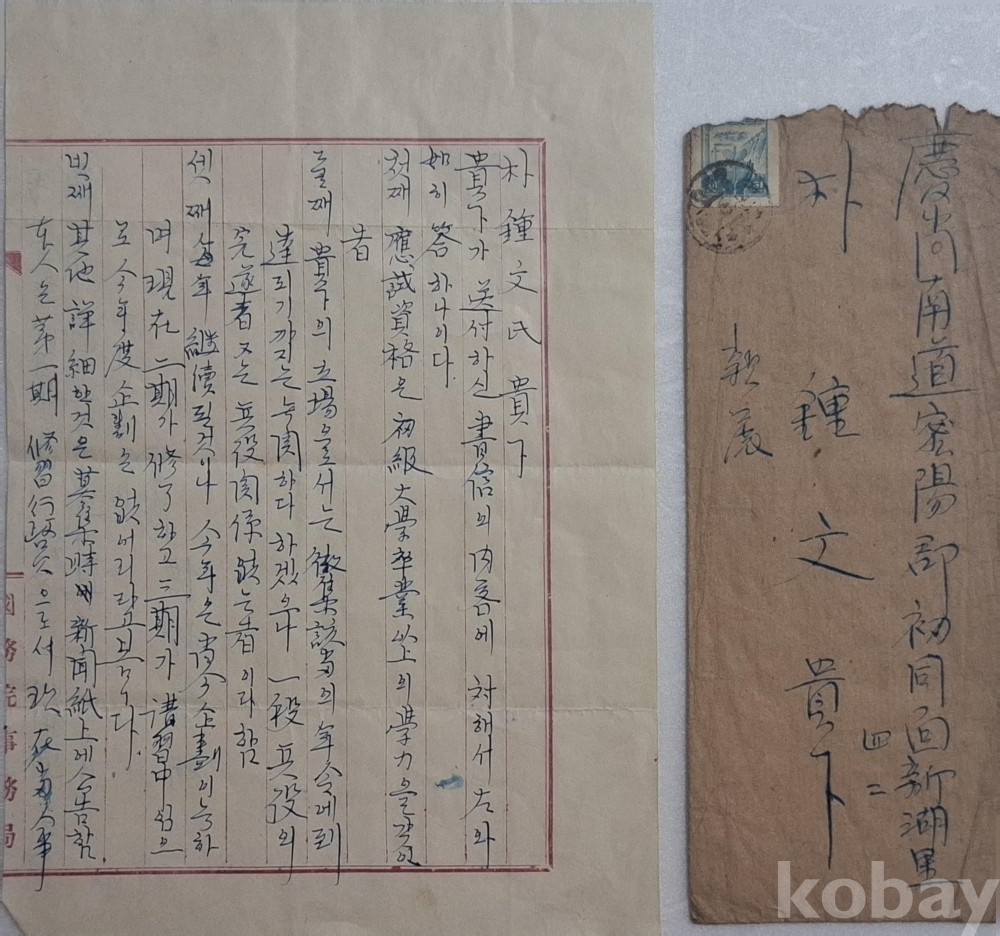 朴鍾文氏 貴下
貴下가 送付하신 書信의 內容에 対해서 左와
如히 答하나이다.
첫째 應試資格은 初級大學卒業以上의 學力을 갖인
者
둘째 貴下의 立場으로서는 徵集該当의 年令에 到
達되기까지는 無関하다 하겠으나 一段 兵役의
完遂者 又는 兵役関係 없는 者이라 함
셋째 每年 継続될 것이나 今年은 企劃이
며 現在 二期가 修了하고 三期가 講習中
今年度 企劃은 없으리라고 봅니다.
넷째 其他 詳細한 것은 募集時에 新聞紙上에 公告함
本人은 第一期 修習行政 으로서 現在 人事
國務院事務局
慶尙南道密陽郡初同面新湖里
四二
朴鍾文 貴下
親展
kobay